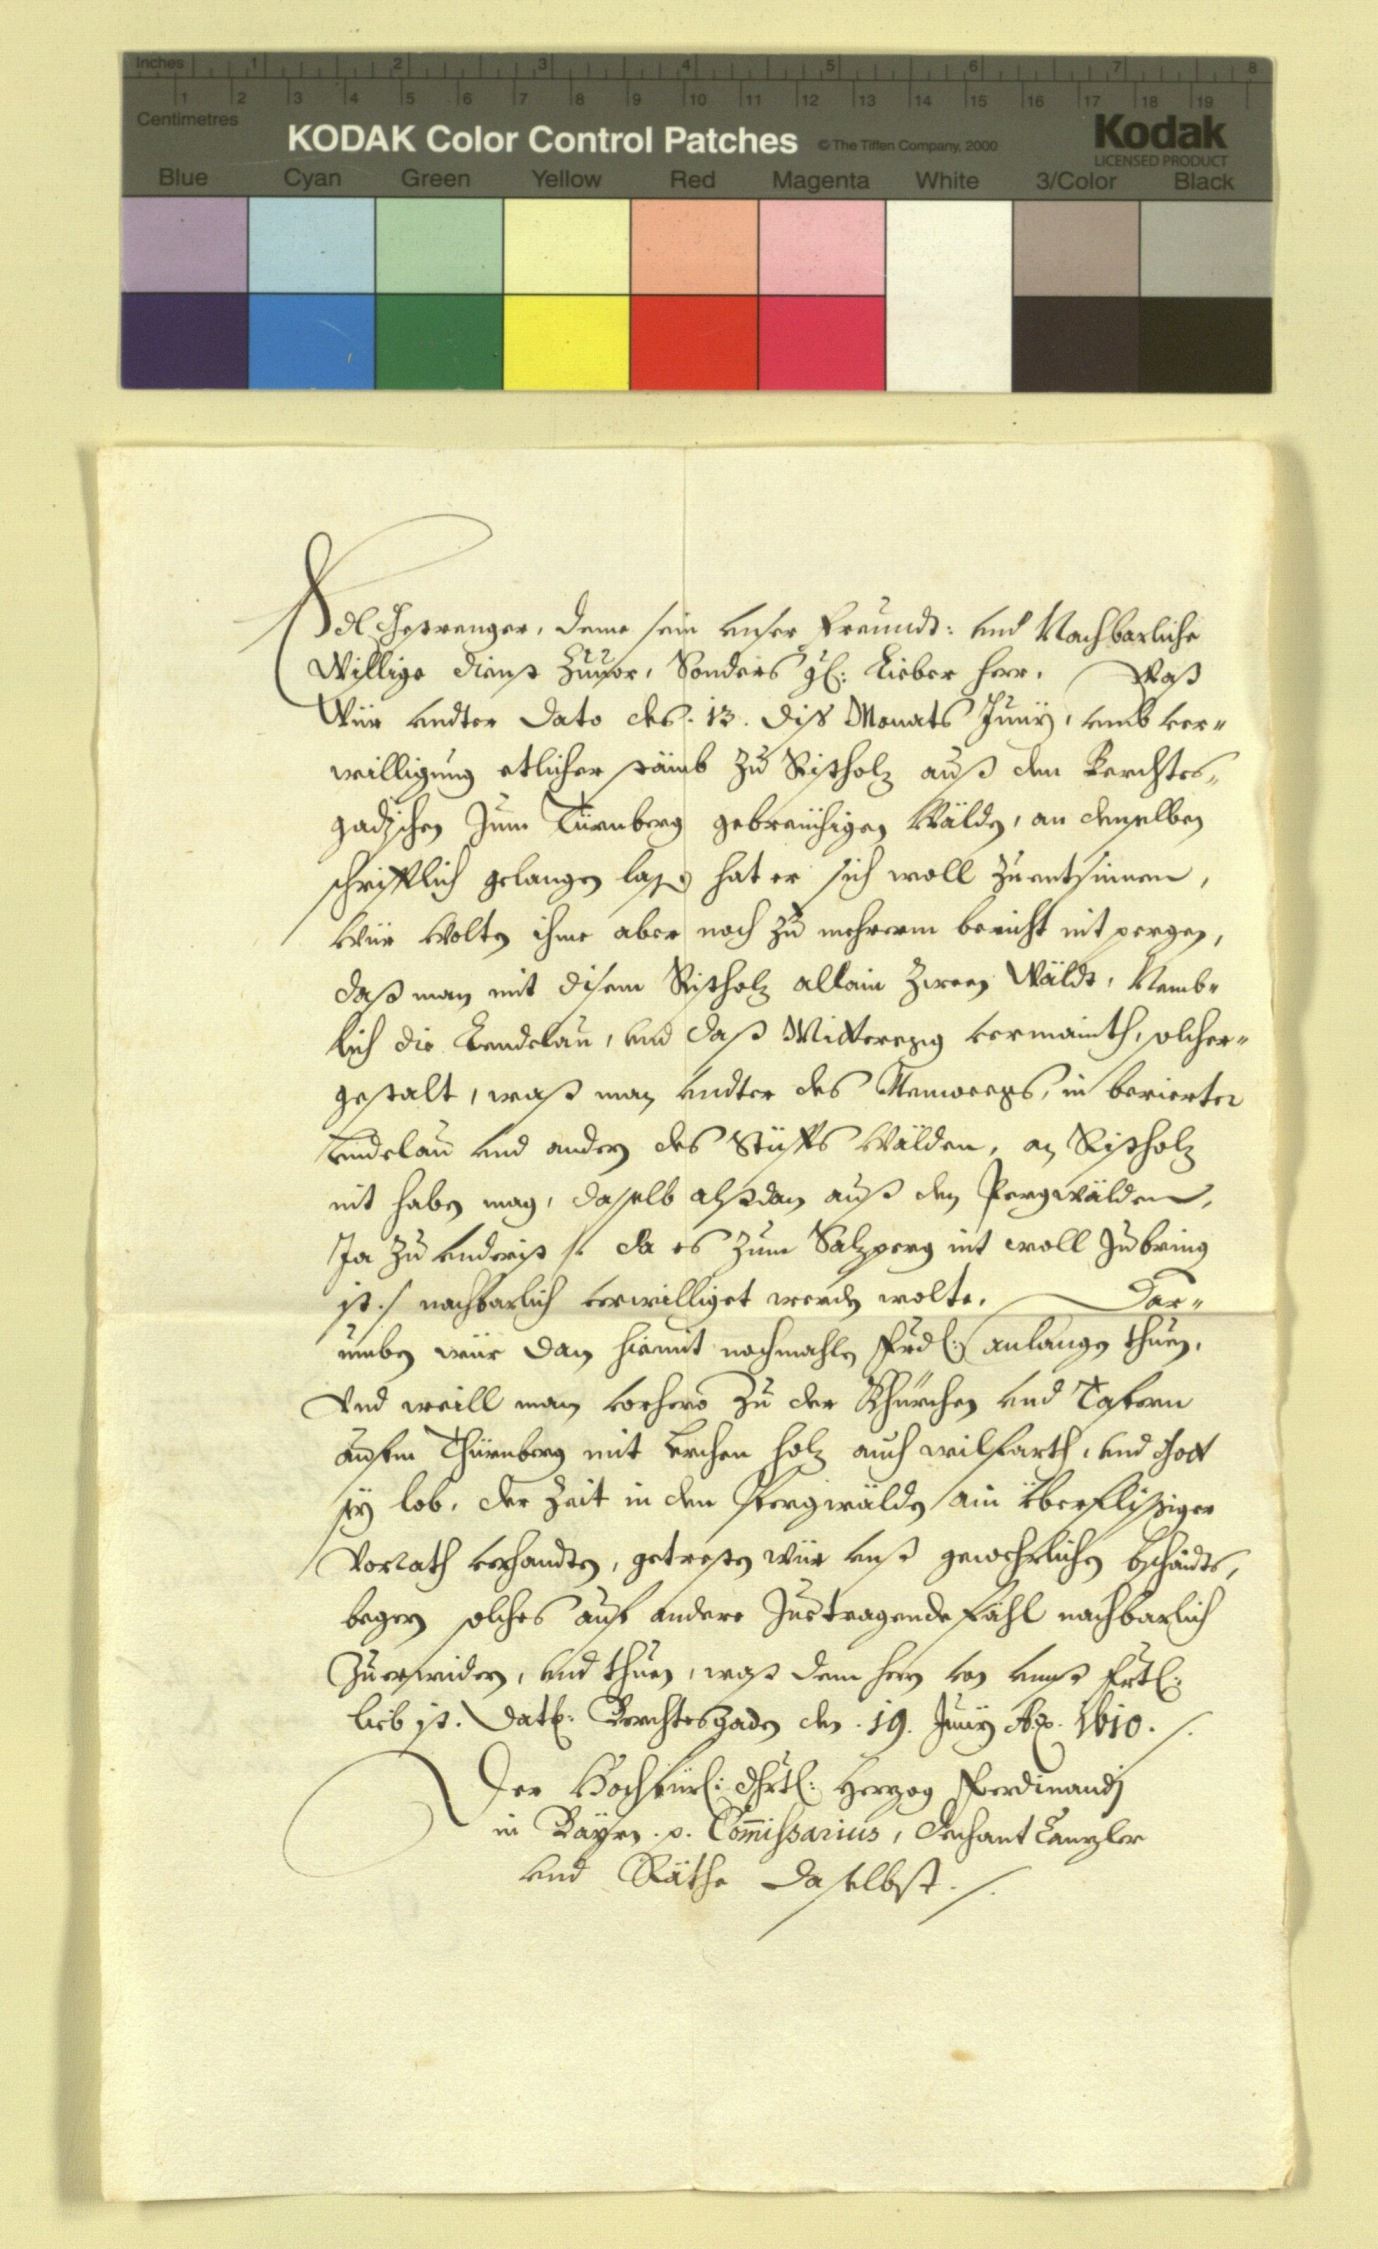 Inches 1 2 3 4 5 6 7 8
1 2 3 4 5 6 7 8 9 10 11 12 13 14 15 16 17 18 19
Centimetres
KODAK Color Control Patches © The Tiffen Company, 2000 Kodak
LICENSED PRODUCT
Blue Cyan Green Yellow Red Magenta White 3/Color Black
Edl Gestrenger, deme sein unser Freundt: und Nachbarliche
Willige dienst Zuuor, Sonders gl: Lieber Herr. Waß
Wür undter dato des . 13. diß Monats Junij, umb ver„
willigung etlicher stämb zu Ristholz auß den Berchtes„
gadischen zum Türnberg gebreuchigen Wälden, an denselben
schrifftlich gelangen lassen hat er sich woll zuentsinnen,
Wür wolten ihme aber noch zu mehrerm bericht nit pergen,
daß man mit disem Ristholz allain Zween Wäldt, Nemb„
lich die und daß vermainth, solcher„
gestalt, waß man undter des in berierter
und andern des Stüffts Wälden, an Ristholz
nit haben mag, dasselb alßdan auß den Pergwälden,
Ja zu underist /: da es zum Salzperg nit woll zubringen
ist :/ nachbarlich verwilliget werden wolte. Dar„
umben wür dan hiemit nochmahlen frdl: anlangen thuen,
Und weill man vorhero zu der Khürchen und Tafern
aufm Thürnberg mit Lerchen holz auch wilfarth, und Gott
sey lob, der Zeit in den Pergwälden ain Überflissiger
Vorrath verhandten, getresten wür unß gewehrlichen bschaidts,
begern solches auf andere Zuetragende fähl nachbarlich
Zuerwidern, und thuen, waß dem herrn von unnß frtl:
lieb ist. Dat: Berchtesgaden den . 19. Junij Ao. 1610. /.
Der Hochfürl: Drtl: Herzog Ferdinandj
in Bayrn .p. Com̄issarius, Dechant Canzler
und Räthe daselbst. /.